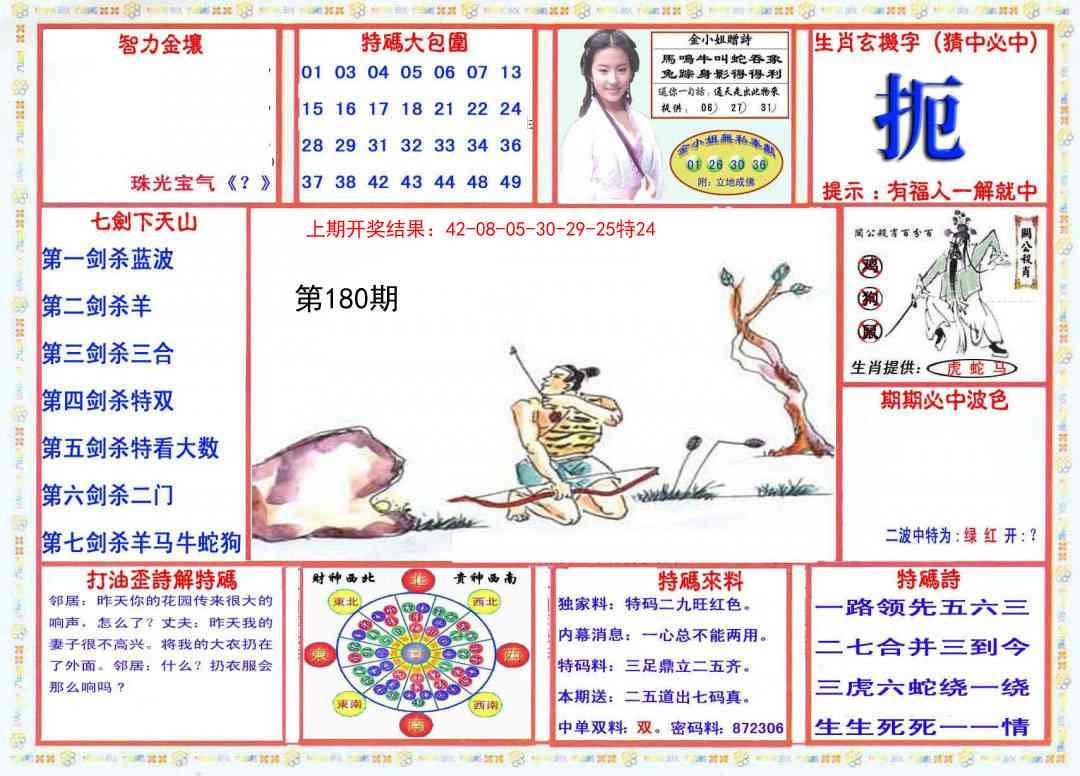 智力金壤
珠光宝气《？》
特碼大包圍
01 03 04 05 06 07 13
15 16 17 18 21 22 24
28 29 31 32 33 34 36
37 38 42 43 44 48 49
金小姐贈詩
馬鳴牛叫蛇吞象
兔踪身影得得利
送你一句話，通天走出此物來
提供：06）27）31）
金小姐無私奉獻
01 26 30 36
附：立地成佛
生肖玄機字（猜中必中）
扼
提示：有福人一解就中
七劍下天山
第一剑杀蓝波
第二剑杀羊
第三剑杀三合
第四剑杀特双
第五剑杀特看大数
第六剑杀二门
第七剑杀羊马牛蛇狗
上期开奖结果：42-08-05-30-29-25特24
第180期
關公殺肖百分百
關公殺肖
鸡
狗
鼠
生肖提供：虎 蛇 马
期期必中波色
二波中特为：绿 红 开：？
打油歪詩解特碼
邻居：昨天你的花园传来很大的
响声，怎么了？丈夫：昨天我的
妻子很不高兴。将我的大衣扔在
了外面。邻居：什么？扔衣服会
那么响吗？
财神西北 貴神西南
北
東北 西北
東 西
東南 西南
南
特碼來料
独家料：特码二九旺红色。
内幕消息：一心总不能两用。
特码料：三足鼎立二五齐。
本期送：二五道出七码真。
中单双料：双。密码料：872306
特碼詩
一路领先五六三
二七合并三到今
三虎六蛇绕一绕
生生死死一一情